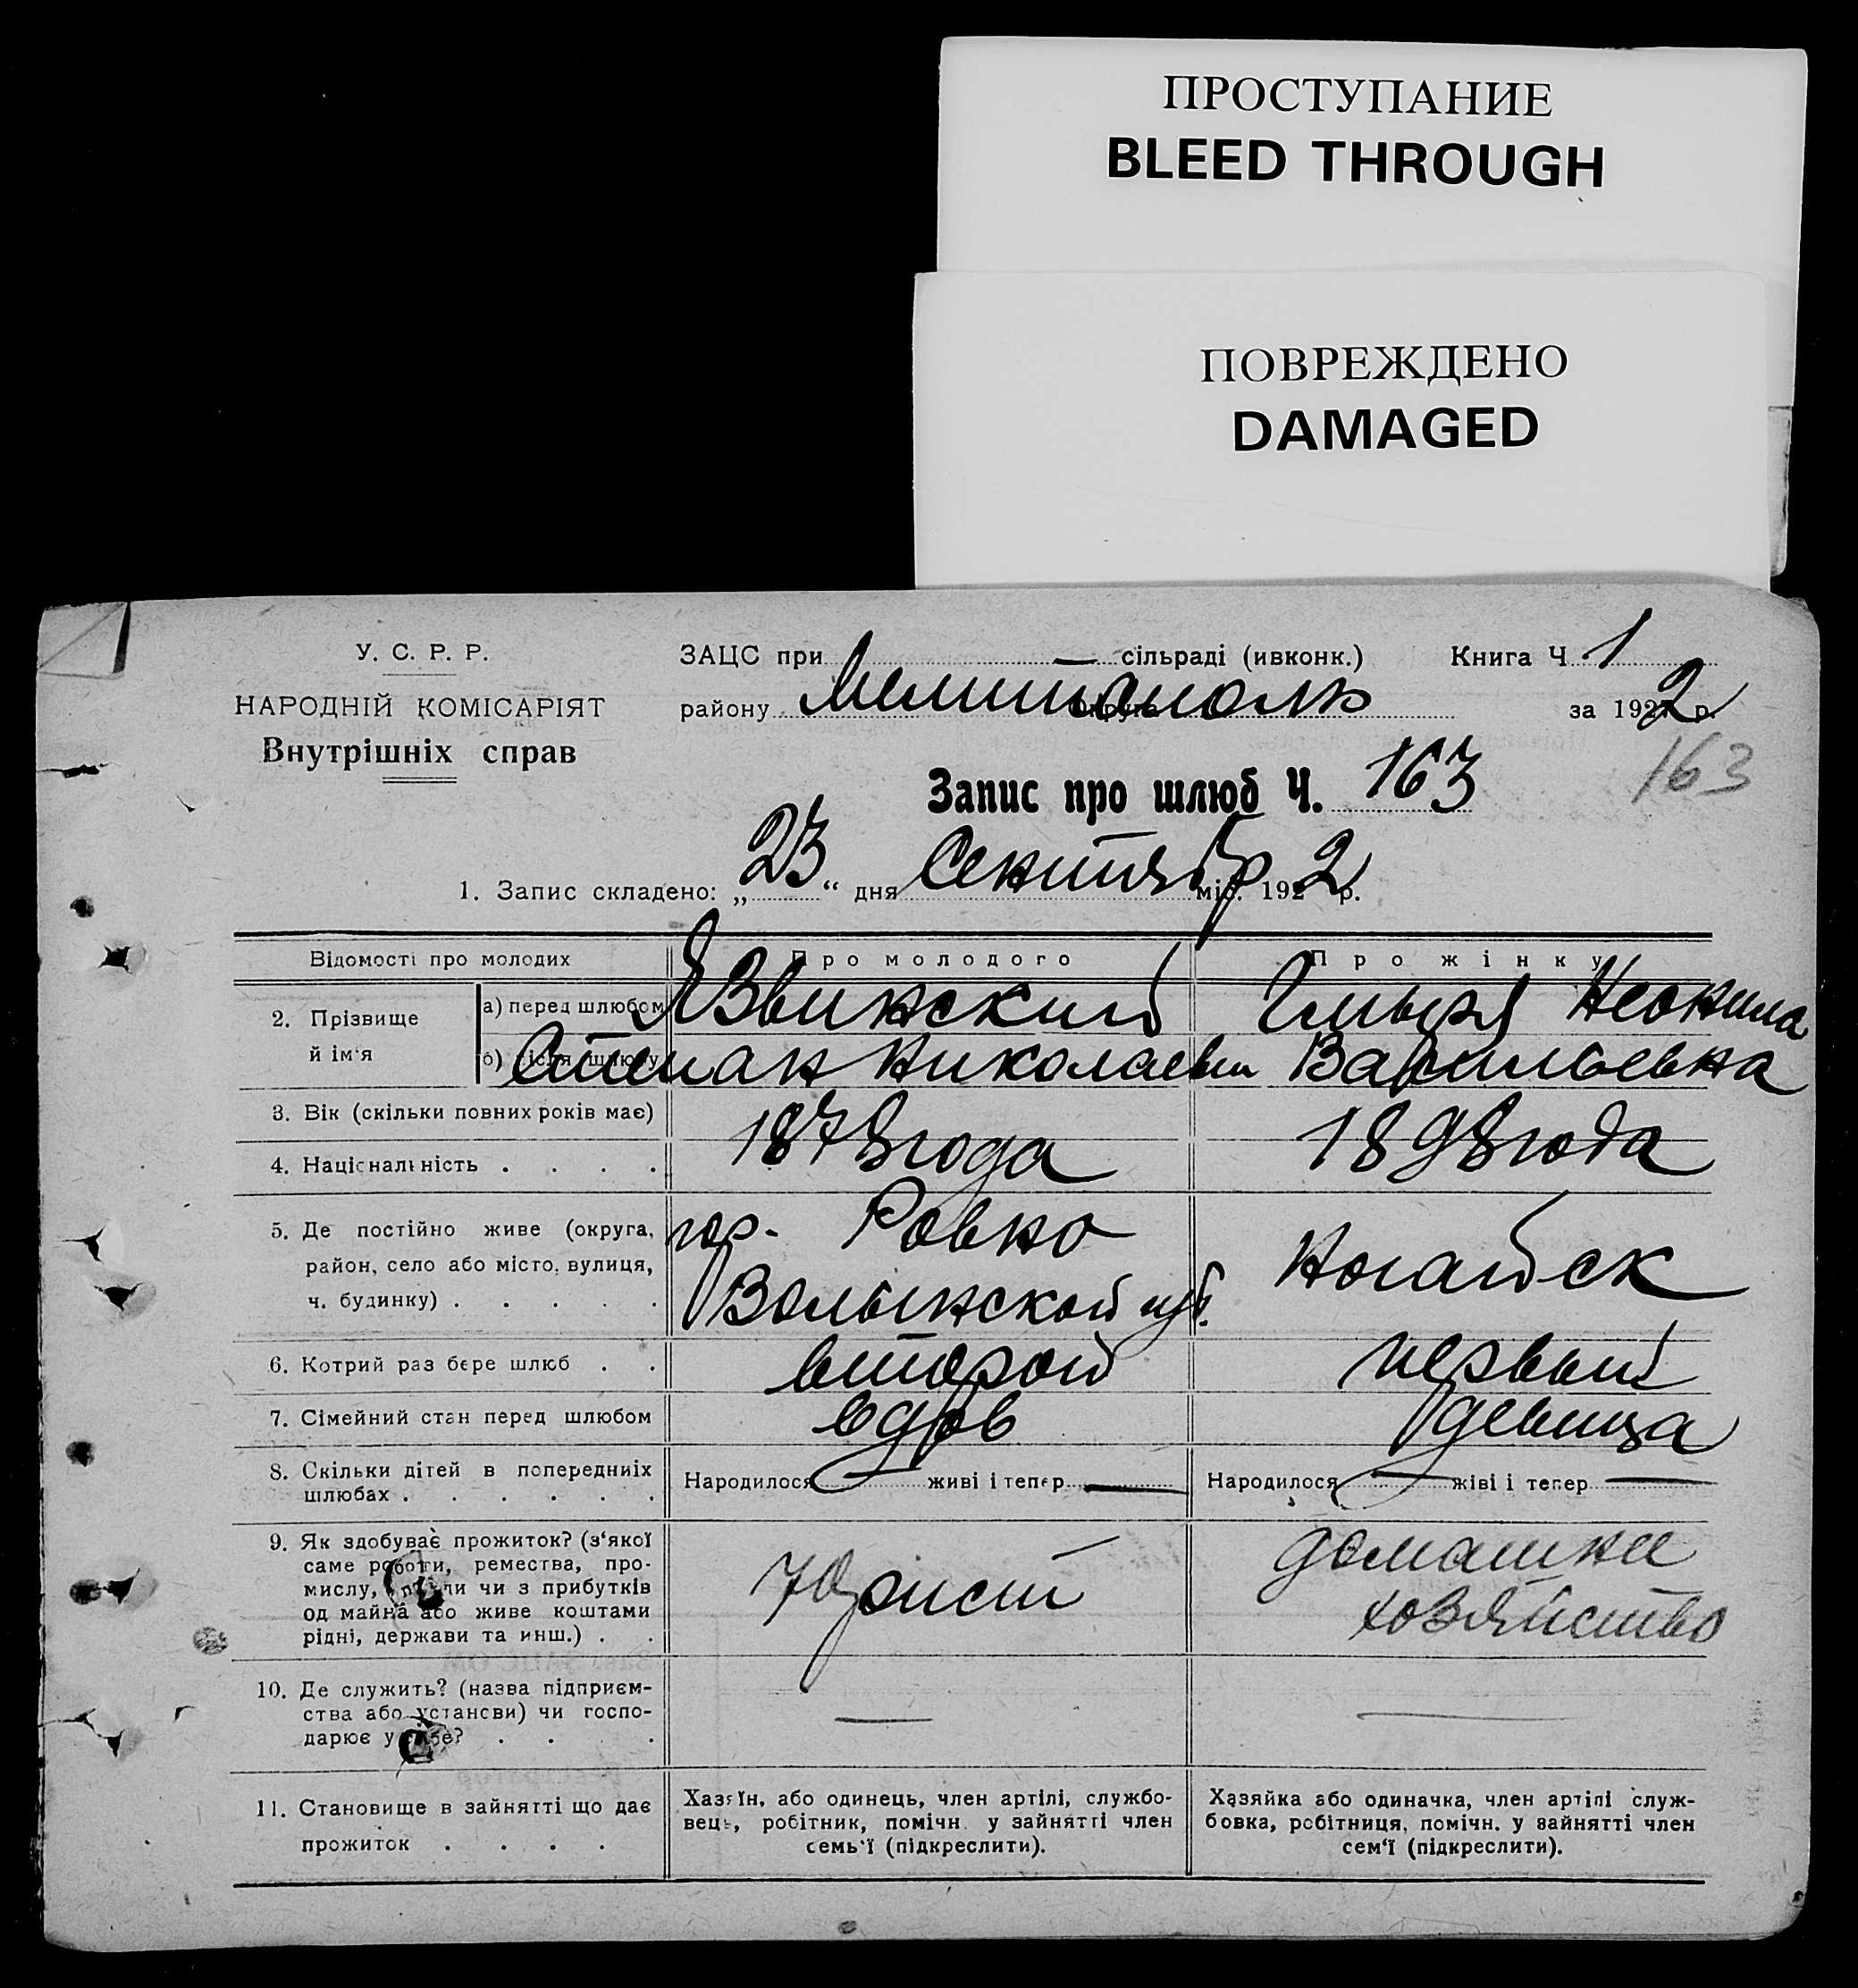 ПРОСТУПАНИЕ
BLEED THROUGH
ПОВРЕЖДЕНО
DAMAGED
У. С. Р. Р.
НАРОДНІЙ КОМІСАРІЯТ
Внутрішніх справ
ЗАЦС при — сільраді (ивконк.) Книга Ч 1
району Мелитополь округи за 1922 р.
163
Запис про шлюб Ч. 163
1. Запис складено: „23“ дня Сентябр міс. 1922 р.
Відомості про молодих Про молодого Про жінку
2. Прізвище й ім'я
а) перед шлюбом Язвинский Гмыря Неонила
б) після шлюбу Степан Николаевич Васильевна
3. Вік (скільки повних років має)
4. Національність . . . . 1878 года 1898 года
5. Де постійно живе (округа, гор. Ровно Ногайск
район, село або місто, вулиця,
ч. будинку) . . . . . Волынской губ.
6. Котрий раз бере шлюб . . второй первый
7. Сімейний стан перед шлюбом вдов девица
8. Скільки дітей в попередниіх Народилося — живі і тепер — Народилося — жіві і тепер —
шлюбах . . . . . .
9. Як здобуває прожиток? (з'якої
саме роботи, ремества, про- Юрист домашнее
мислу, чи з прибутків
од майна або живе коштами хозяйство
рідні, держави та инш.) . .
10. Де служить? (назва підприєм-
ства або установи) чи госпо- — —
дарює у себе? . . . .
11. Становище в зайнятті що дає
прожиток . . . .
Хазяїн, або одинець, член артілі, службо-
вець, робітник, помічн. у зайнятті член
семь'ї (підкреслити).
Хазяйка або одиначка, член артілі служ-
бовка, робітниця, помічн. у зайнятті член
сем'ї (підкреслити).